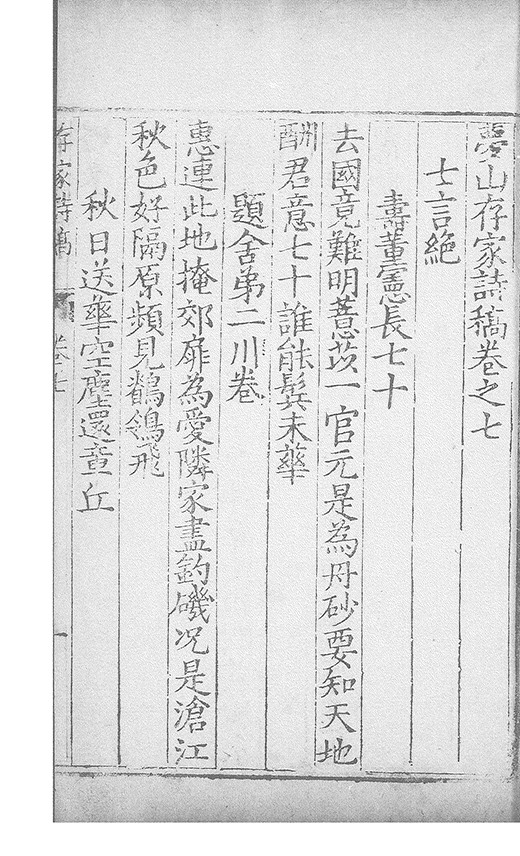 夢山存家詩稿卷之七
七言絶
壽董憲長七十
去國竟難明薏苡一官元是為丹砂要知天地
酬君意七十誰能鬂未華
題舍弟二川卷
惠連此地掩郊扉為愛隣家盡釣磯况是滄江
秋色好隔原頻見鶺鴒飛
秋日送華空塵還章丘
存家詩稿 卷七 一